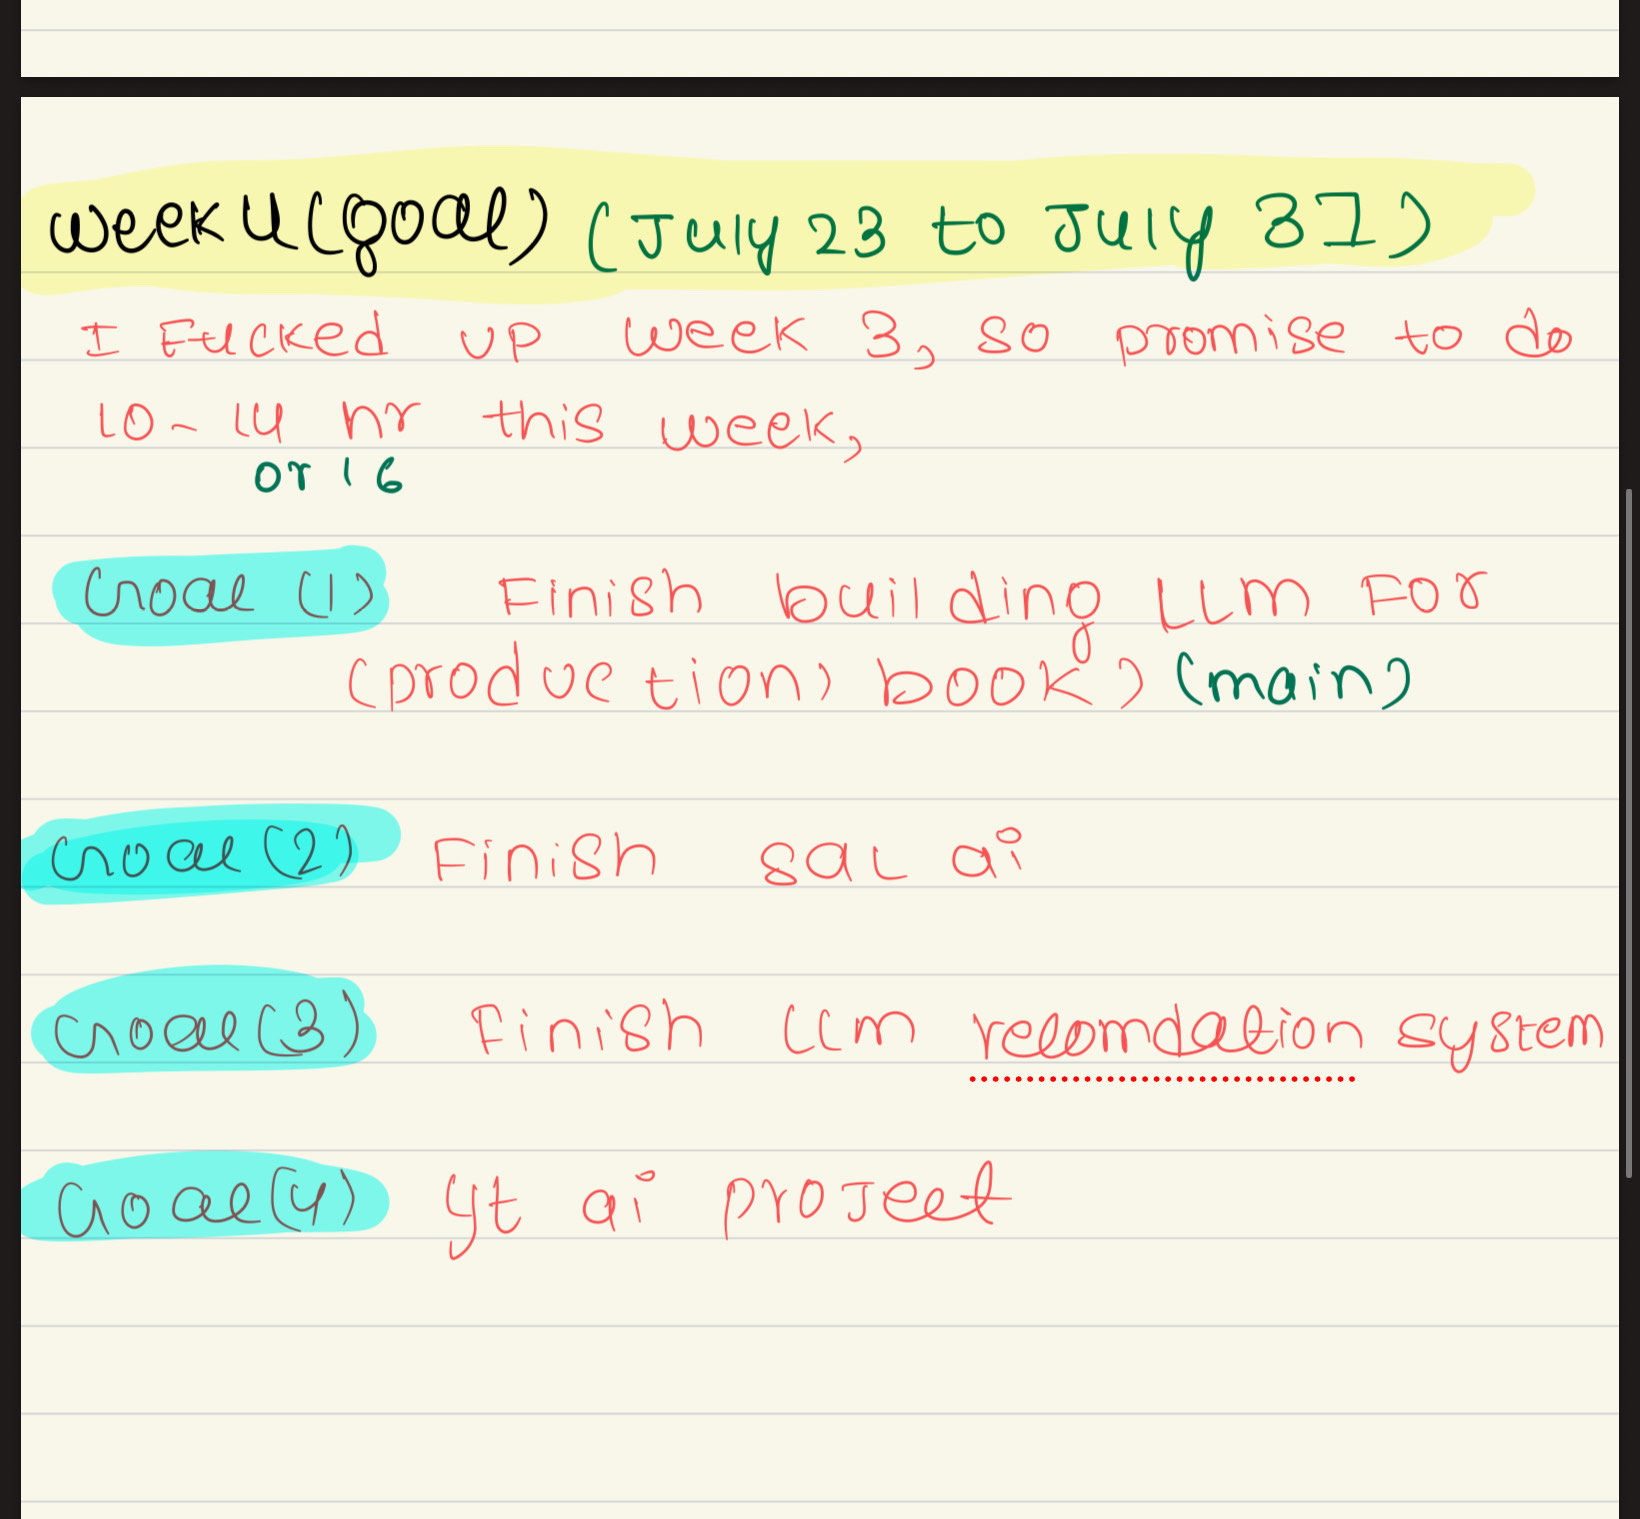 week 4 (goal) (July 23 to July 31)
I Fucked up week 3, so promise to do
10-14 hr this week,
or 16
Goal (1) Finish building LLM For
(production) book) (main)
Goal (2) Finish sal ai
Goal (3) Finish LLM recomdation system
Goal (4) yt ai project